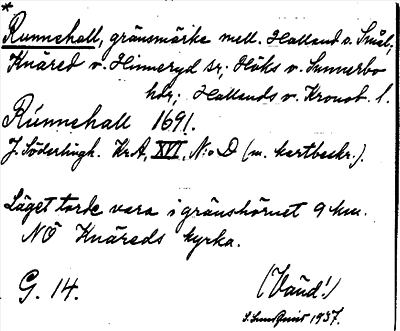 *
Runnehall, gränsmärke mell. Halland o. Smål.,
Knäred o. Hinneryd sr; Höks o. Sunnerbo
hdr; Hallands o. Kronob. l.
Rúnnehall 1691.
J. Söderlingh. KrA, XVI, N:o D (m. kartbeskr.).
Läget torde vara i gränshörnet 9 km.
NÖ Knäreds kyrka.
G. 14.
(Vänd!)
S. Sundquist 1937.